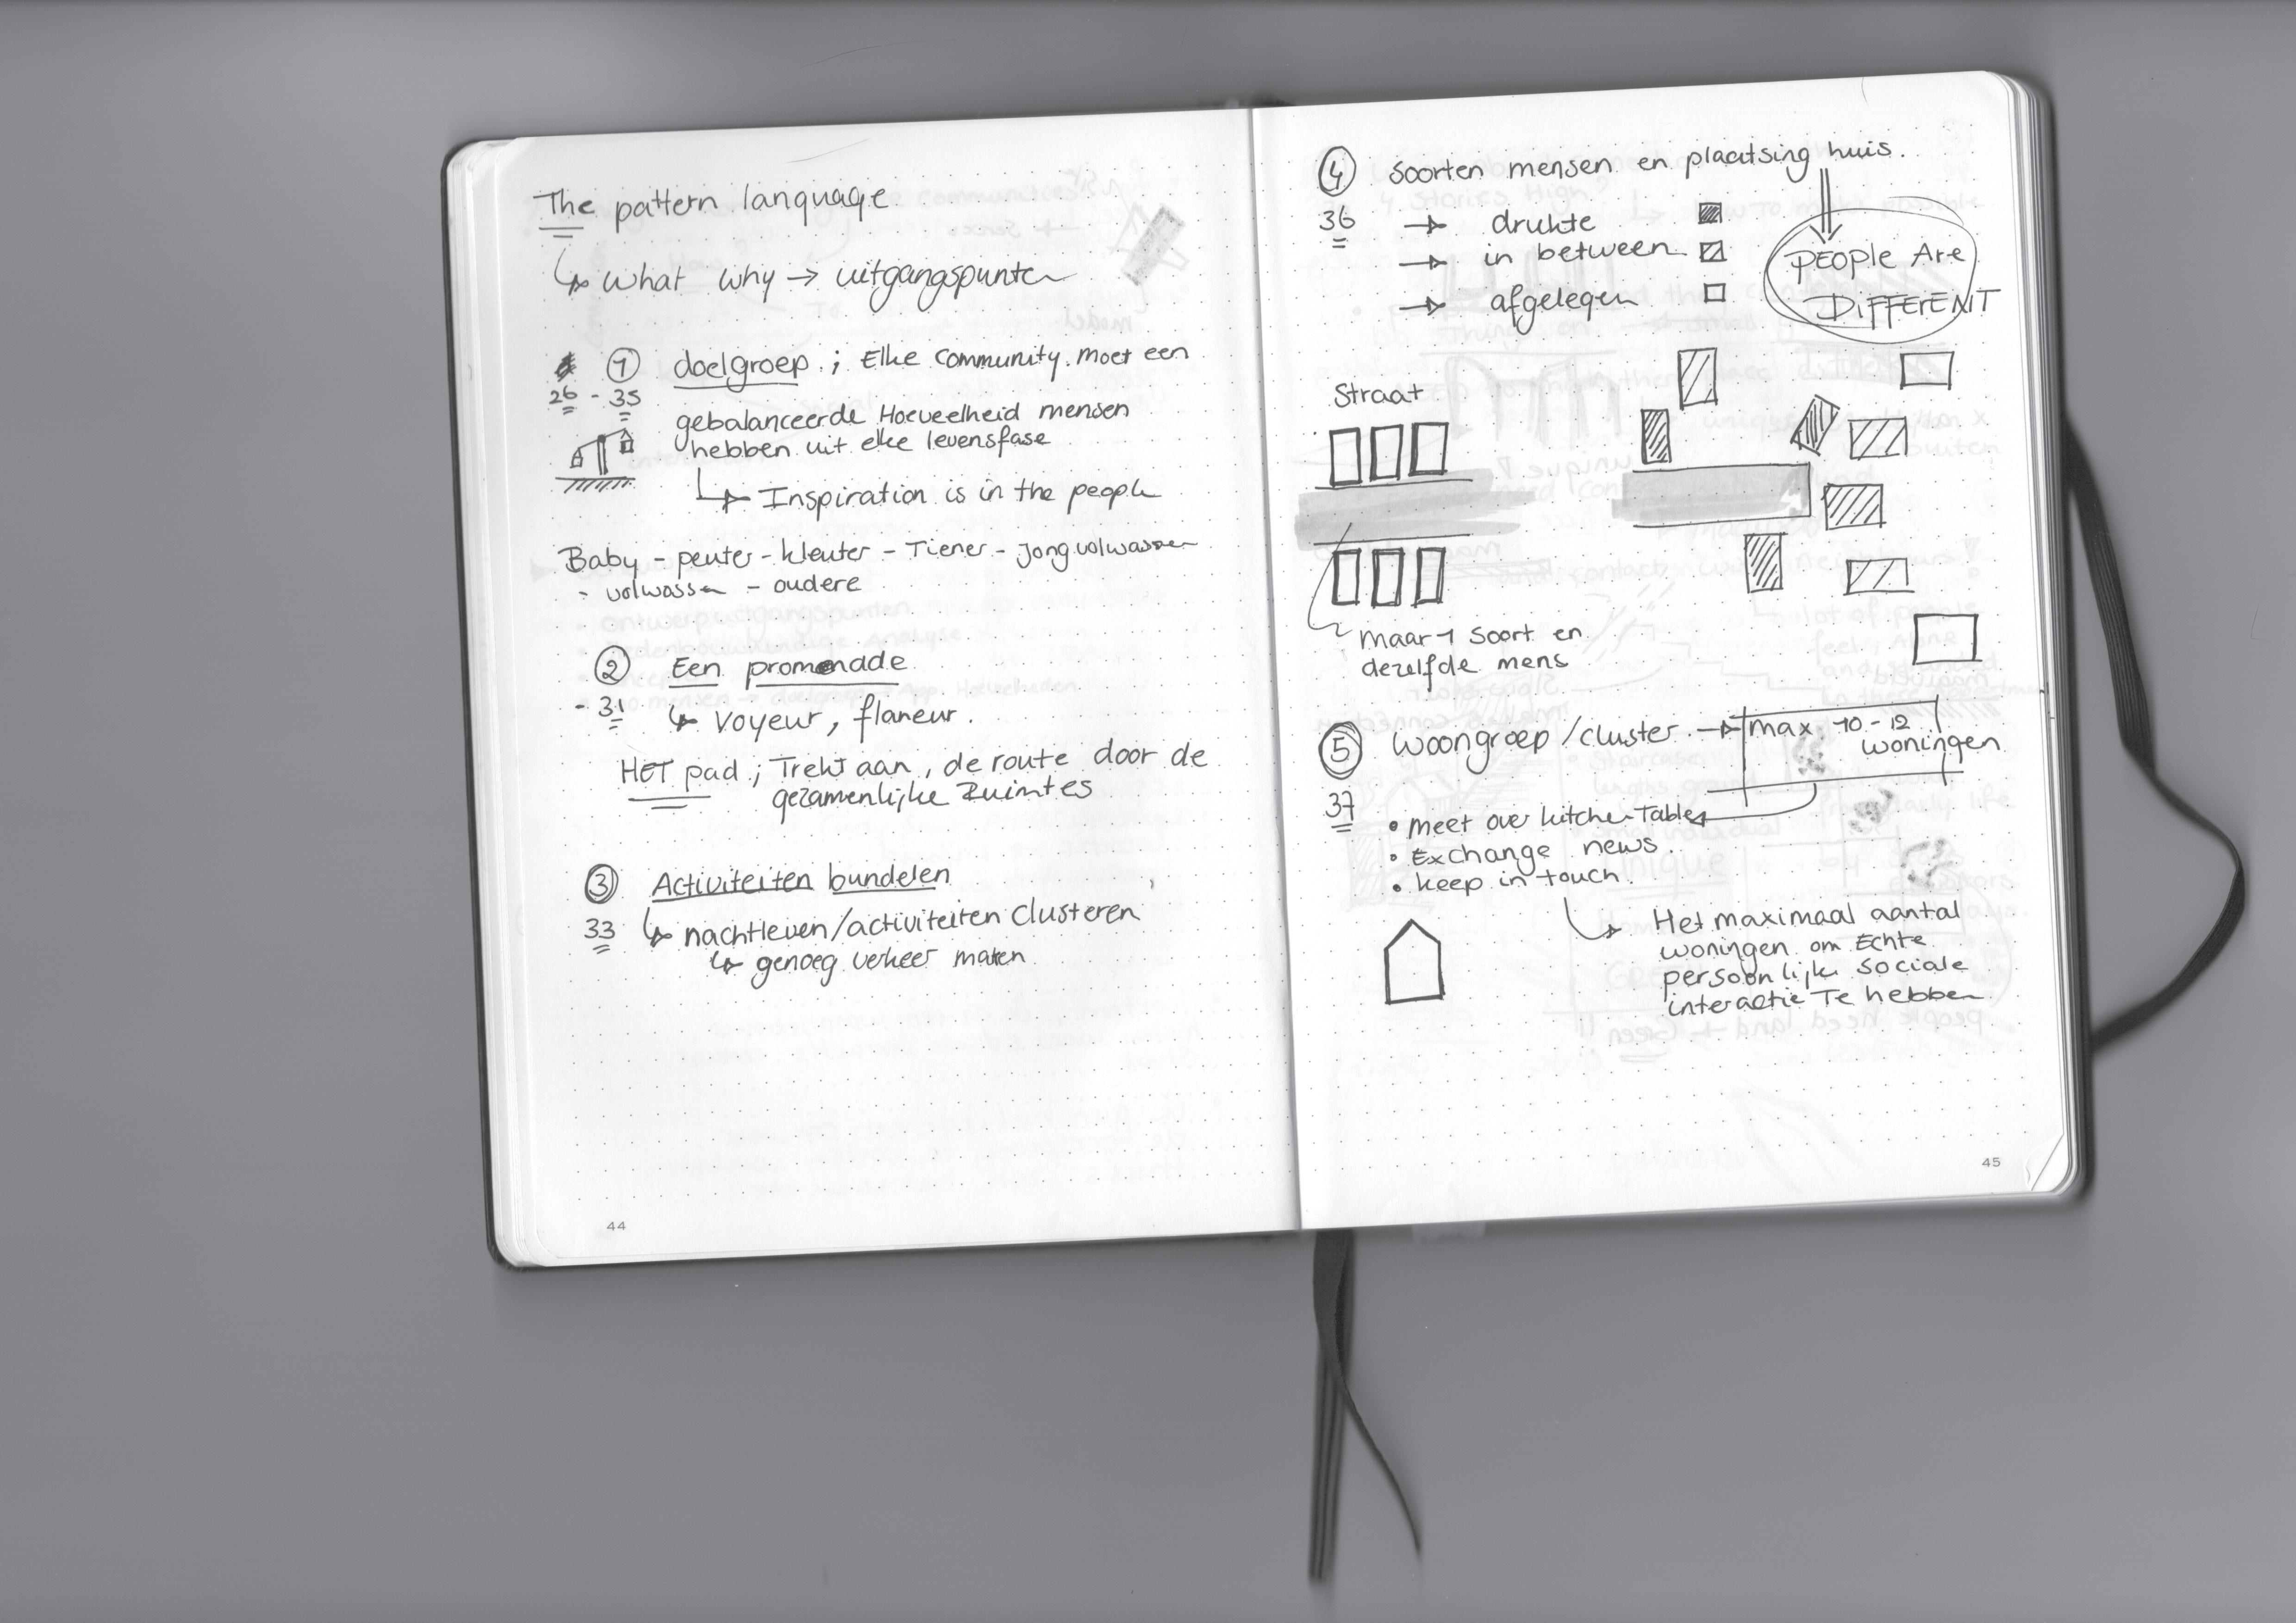 The pattern language
What why → uitgangspunten
① doelgroep ; Elke community moet een
26 - 35
gebalanceerde Hoeveelheid mensen
hebben uit elke levensfase
Inspiration is in the people
Baby - peuter - kleuter - Tiener - jongvolwassen
- volwassen - oudere
② Een promenade
- 31
voyeur, flaneur.
HET pad ; Trekt aan, de route door de
gezamenlijke Ruimtes
③ Activiteiten bundelen
33
nachtleven/activiteiten Clusteren
genoeg verkeer maken
44
④ soorten mensen en plaatsing huis.
36
→ drukte
→ in between
→ afgelegen
PEOPLE Are
DIFFERENT
Straat
maar 1 soort en
dezelfde mens
⑤ woongroep/cluster → max 10 - 12
woningen
37
• meet over kitchen Table
• Exchange news.
• keep in touch.
Het maximaal aantal
woningen om Echte
persoonlijke sociale
interactie Te hebben
45